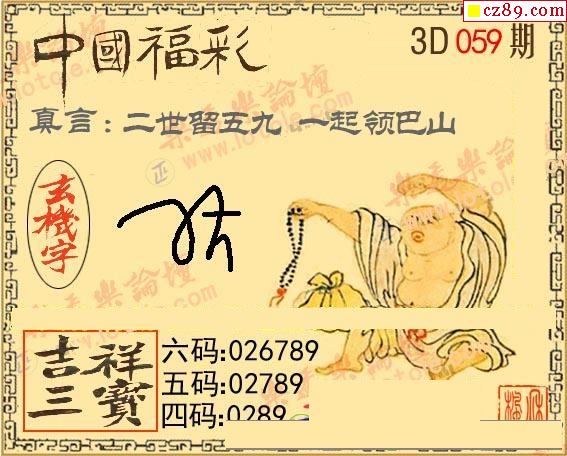 cz89.com
中國福彩
3D 059 期
真言:二世留五九 一起领巴山
玄機字
吉祥三寶
六码:026789
五码:02789
四码:0289